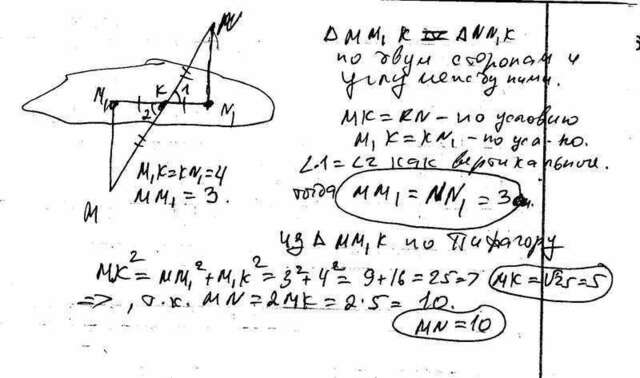 N
M₁
K
1
2
N₁
M
M₁K=KN₁=4
MM₁=3.
Δ MM₁K = ΔNN₁K
по двум сторонам и
углу между ними.
MK=KN – по условию
M₁K=KN₁ – по усл-ю.
∠1=∠2 как вертикальные.
тогда MM₁=NN₁=3
из Δ MM₁K по Пифагору
MK²=MM₁²+M₁K²=3²+4²=9+16=25=> MK=√25=5
=>, т.к. MN=2MK=2·5=10.
MN=10